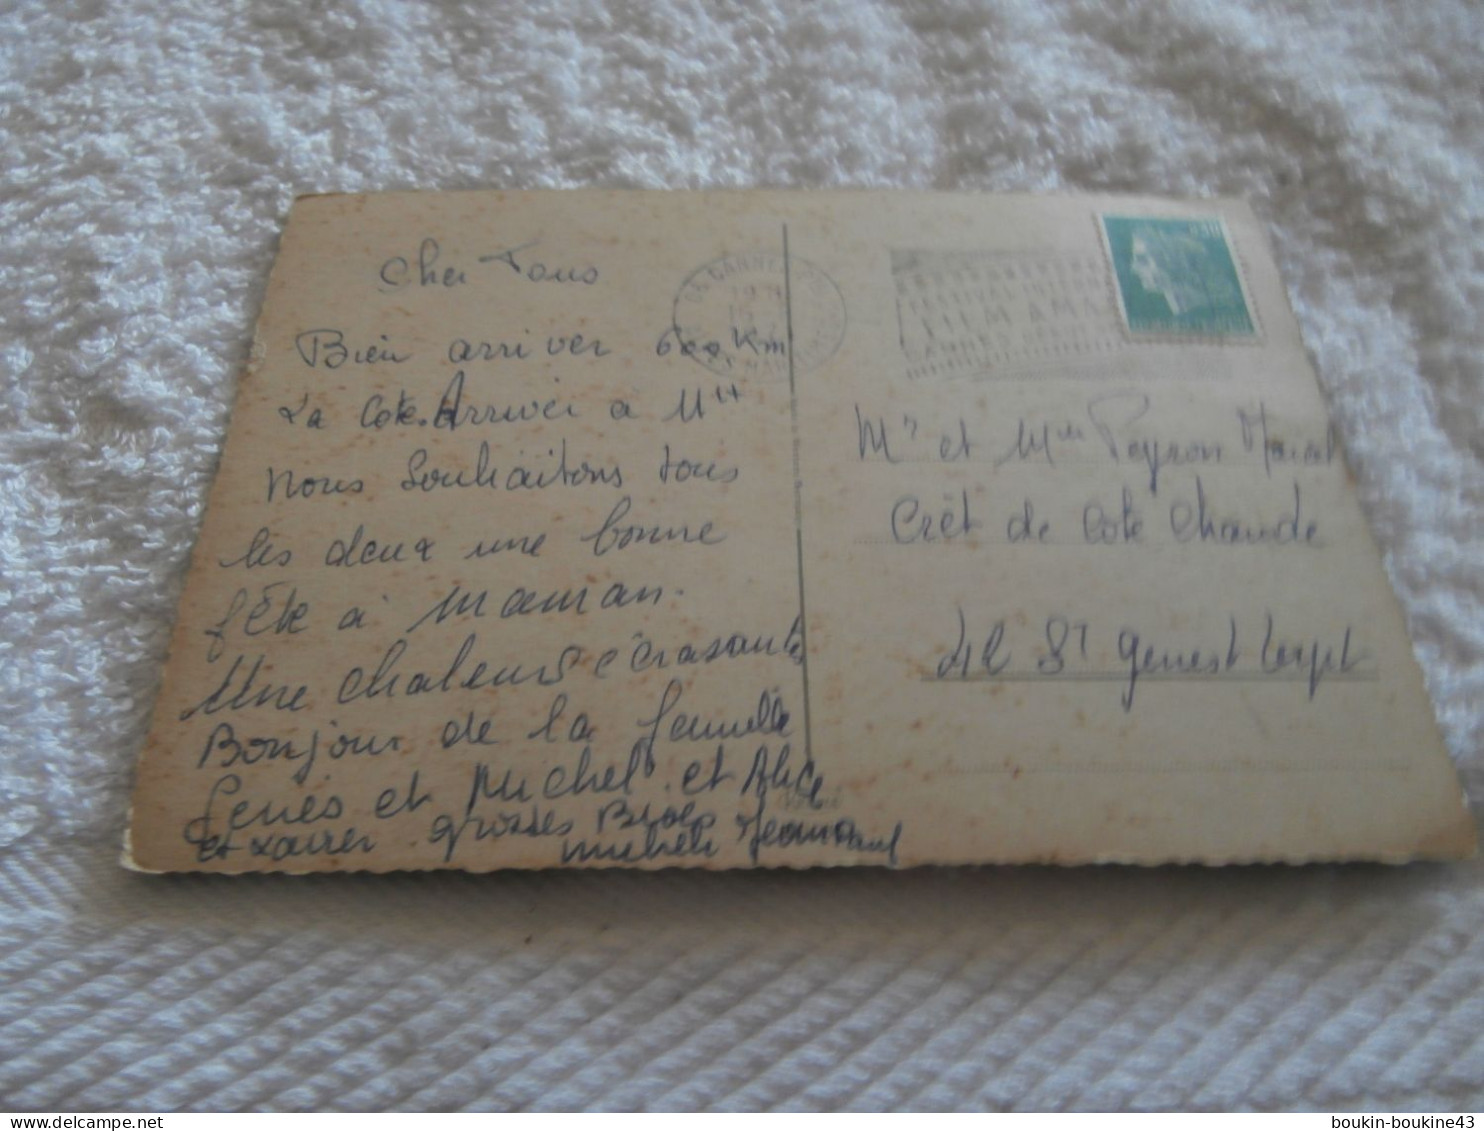 Cher Tous
Bien arriver 600 Km
La Cote. Arriver a 11H
nous souhaitons tous
les deux une bonne
fête à maman.
Une chaleur écrasante
Bonjour de la famille
et Michel et Alice
et xavier grosses Bises
michèle Jean Paul
CANNES
FESTIVAL INT
FILM AMA
CANNES
Mr et Mme Peyron Marcel
Crêt de Cote Chaude
42 ST Genest Lerpt
boukin-boukine43